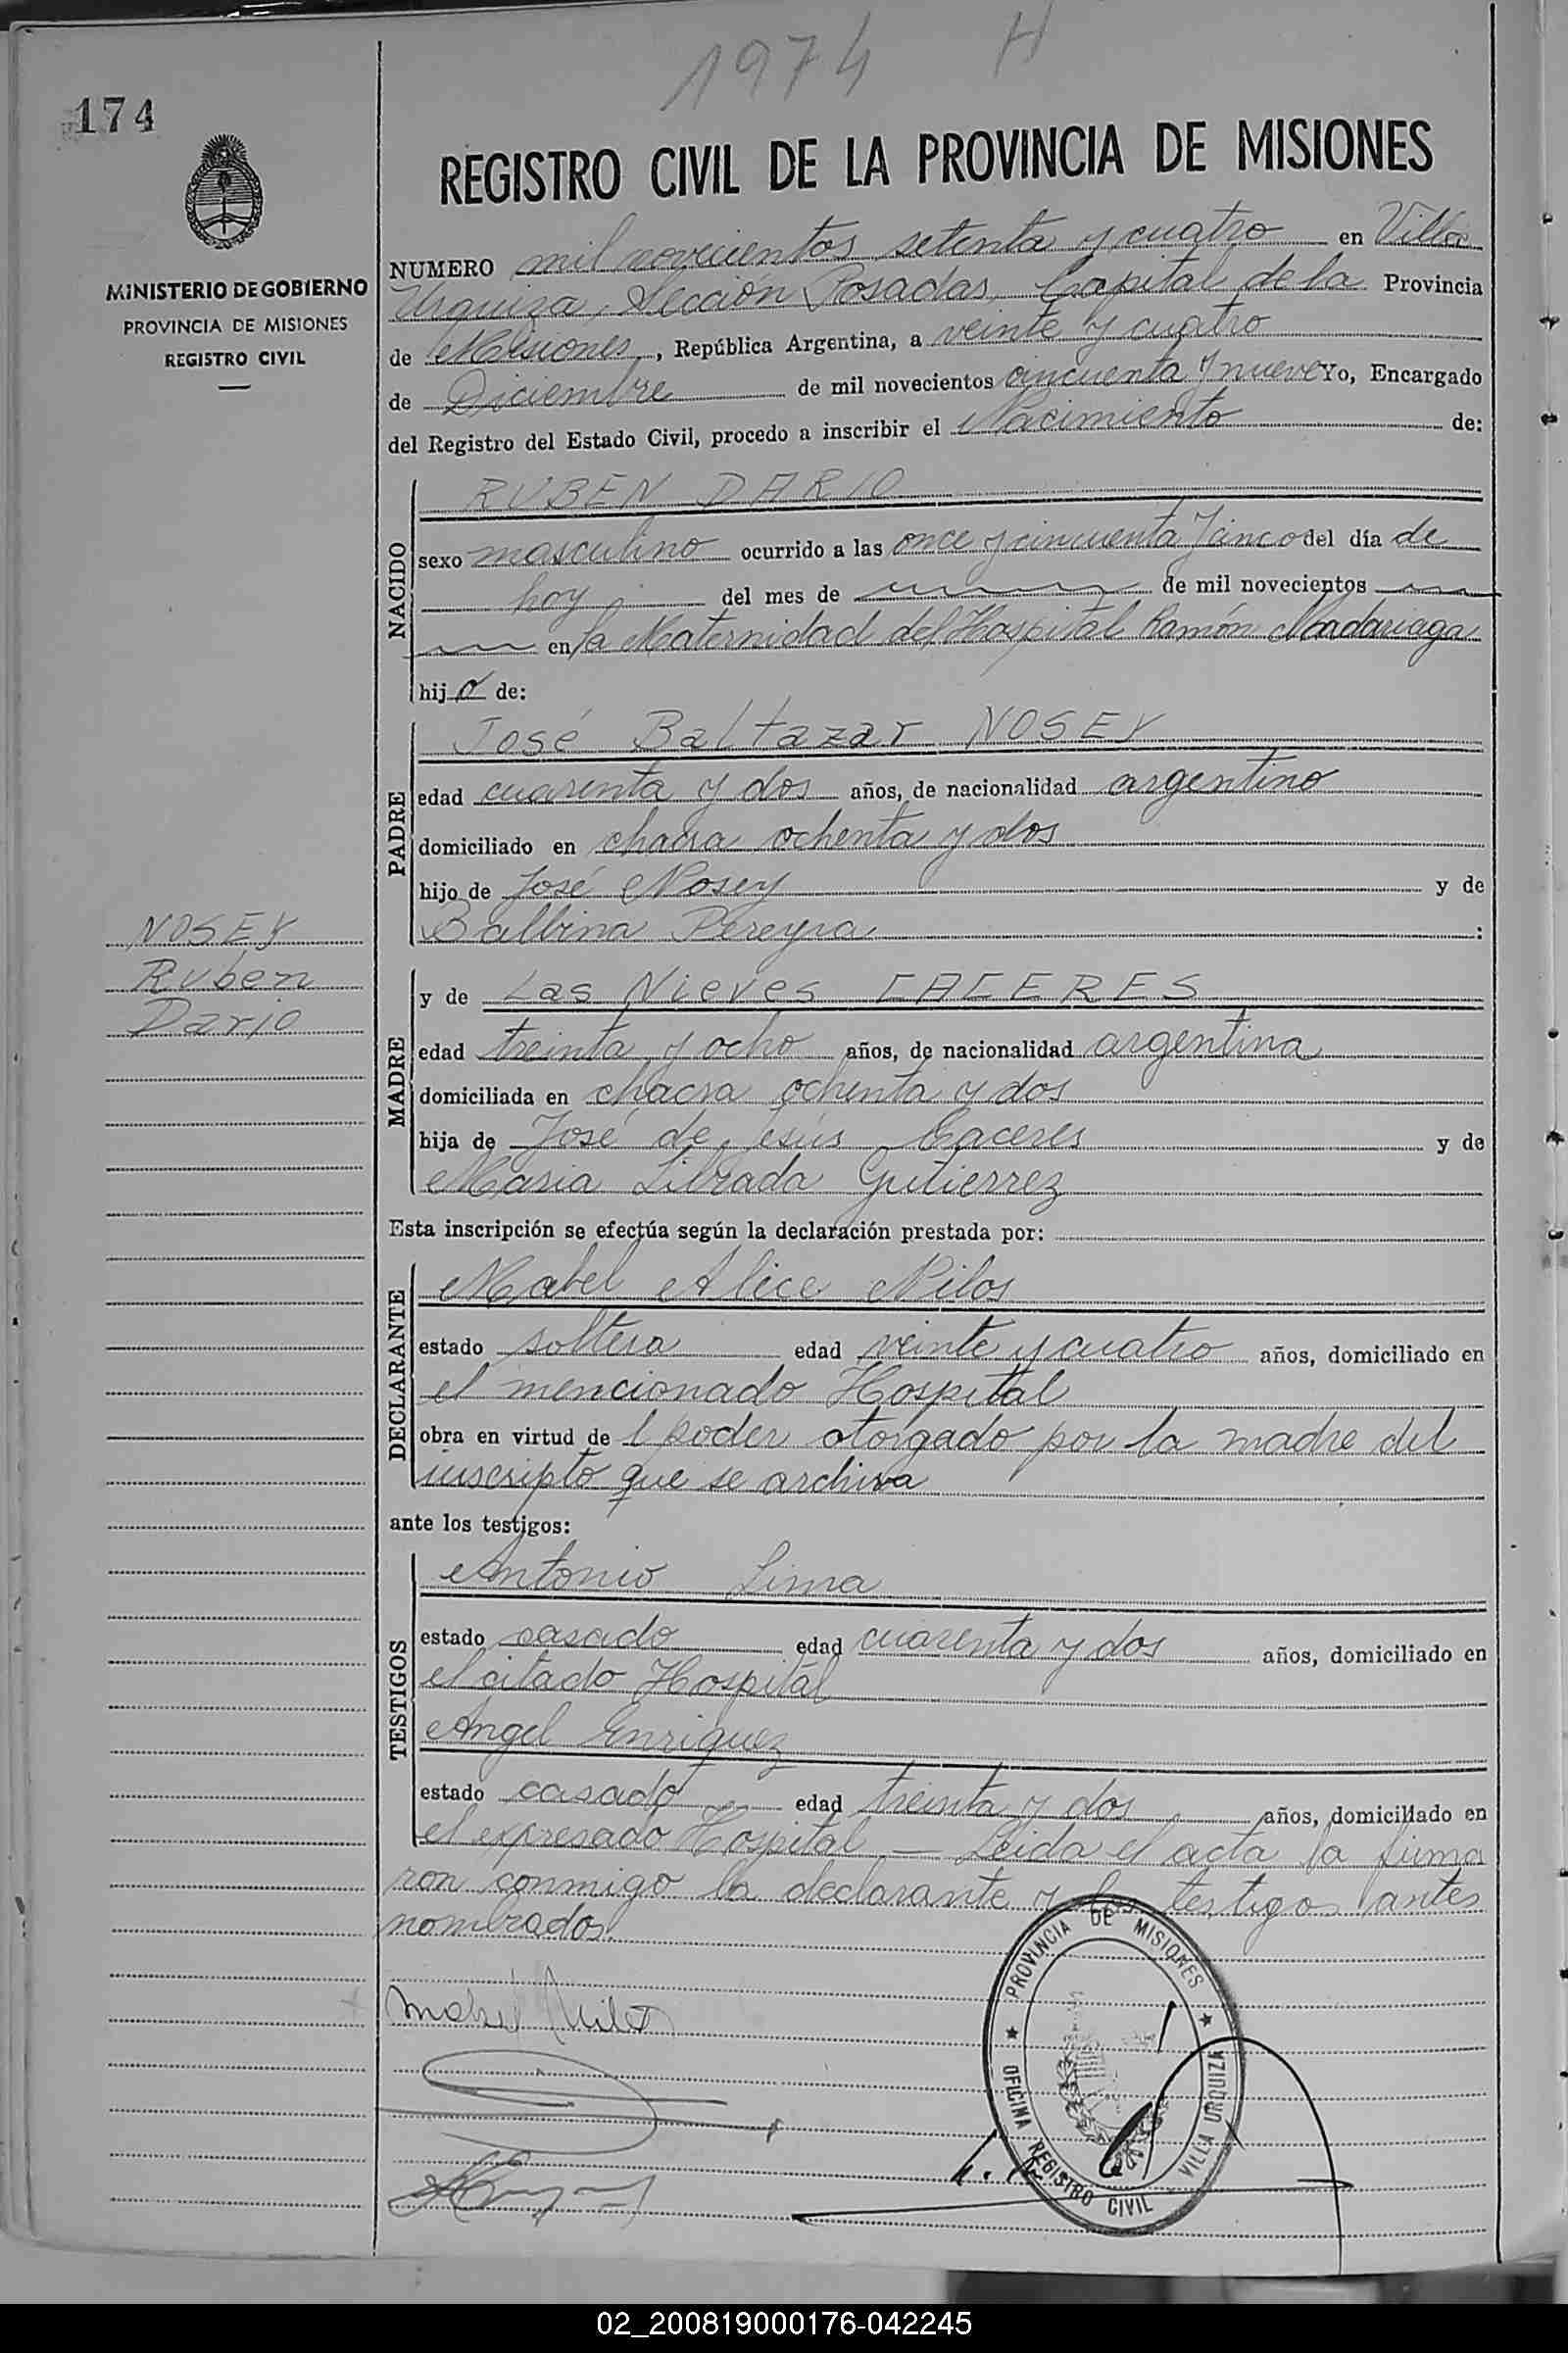 1974 H
174
REGISTRO CIVIL DE LA PROVINCIA DE MISIONES
MINISTERIO DE GOBIERNO
PROVINCIA DE MISIONES
REGISTRO CIVIL
NUMERO mil novecientos setenta y cuatro en Villa
Urquiza, Sección Posadas, Capital de la Provincia
de Misiones, República Argentina, a veinte y cuatro
de Diciembre de mil novecientos cincuenta y nueve Yo, Encargado
del Registro del Estado Civil, procedo a inscribir el Nacimiento de:
NACIDO
RUBEN DARIO
sexo masculino ocurrido a las once y cincuenta y cinco del día de
hoy del mes de de mil novecientos
en la Maternidad del Hospital Ramón Madariaga
hijo de:
PADRE
José Baltazar NOSEY
edad cuarenta y dos años, de nacionalidad argentino
domiciliado en chacra ochenta y dos
hijo de José Nosey y de
Balbina Pereyra :
NOSEY
Ruben
Dario
MADRE
y de Las Nieves CACERES
edad treinta y ocho años, de nacionalidad argentina
domiciliada en chacra ochenta y dos
hija de José de Jesús Caceres y de
Maria Librada Gutierrez
Esta inscripción se efectúa según la declaración prestada por:
DECLARANTE
Mabel Alice Nilos
estado soltera edad veinte y cuatro años, domiciliado en
el mencionado Hospital
obra en virtud de l poder otorgado por la madre del
inscripto que se archiva
ante los testigos:
TESTIGOS
Antonio Lima
estado casado edad cuarenta y dos años, domiciliado en
el citado Hospital
Angel Enriquez
estado casado edad treinta y dos años, domiciliado en
el expresado Hospital — Leida el acta la firma
ron conmigo la declarante y los testigos antes
nombrados.
PROVINCIA DE MISIONES
OFICINA REGISTRO CIVIL VILLA URQUIZA
02_200819000176-042245